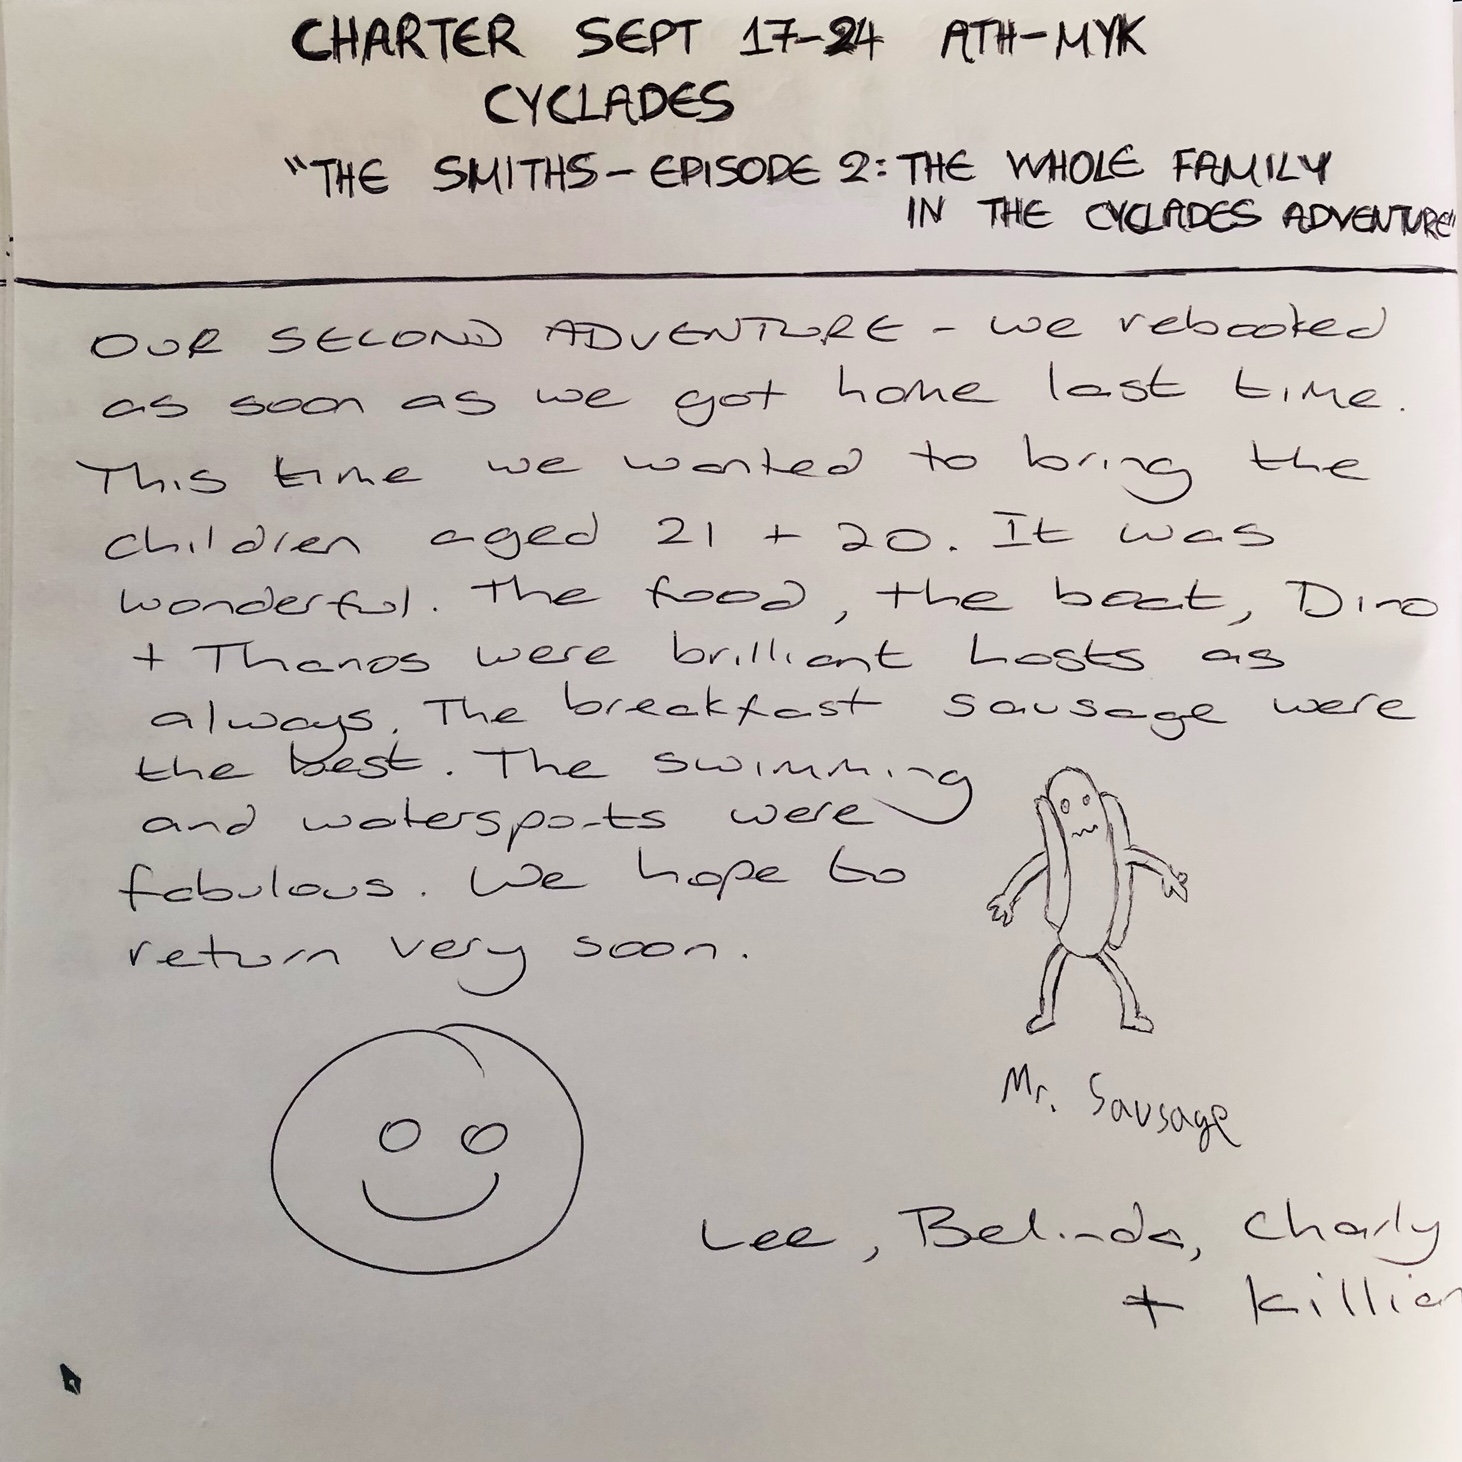 CHARTER SEPT 17-24 ATH-MYK
CYCLADES
"THE SMITHS - EPISODE 2: THE WHOLE FAMILY
IN THE CYCLADES ADVENTURE"
OUR SECOND ADVENTURE - we rebooked
as soon as we got home last time.
This time we wanted to bring the
children aged 21 + 20. It was
wonderful. The food, the boat, Dino
+ Thanos were brilliant hosts as
always. The breakfast sausage were
the best. The swimming
and watersports were
fabulous. We hope to
return very soon.
Mr. Sausage
Lee, Belinda, Charly
+ Killian